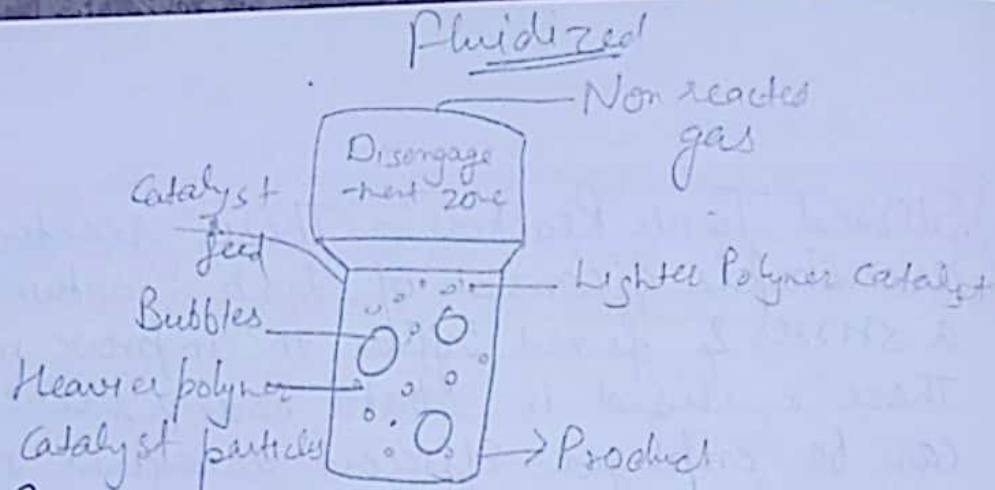 Fluidized
Non reacted
gas
Disengage
-ment zone
Catalyst
feed
Lighter Polymer Catalyst
Bubbles
Heavier polymer
Catalyst particles
Product